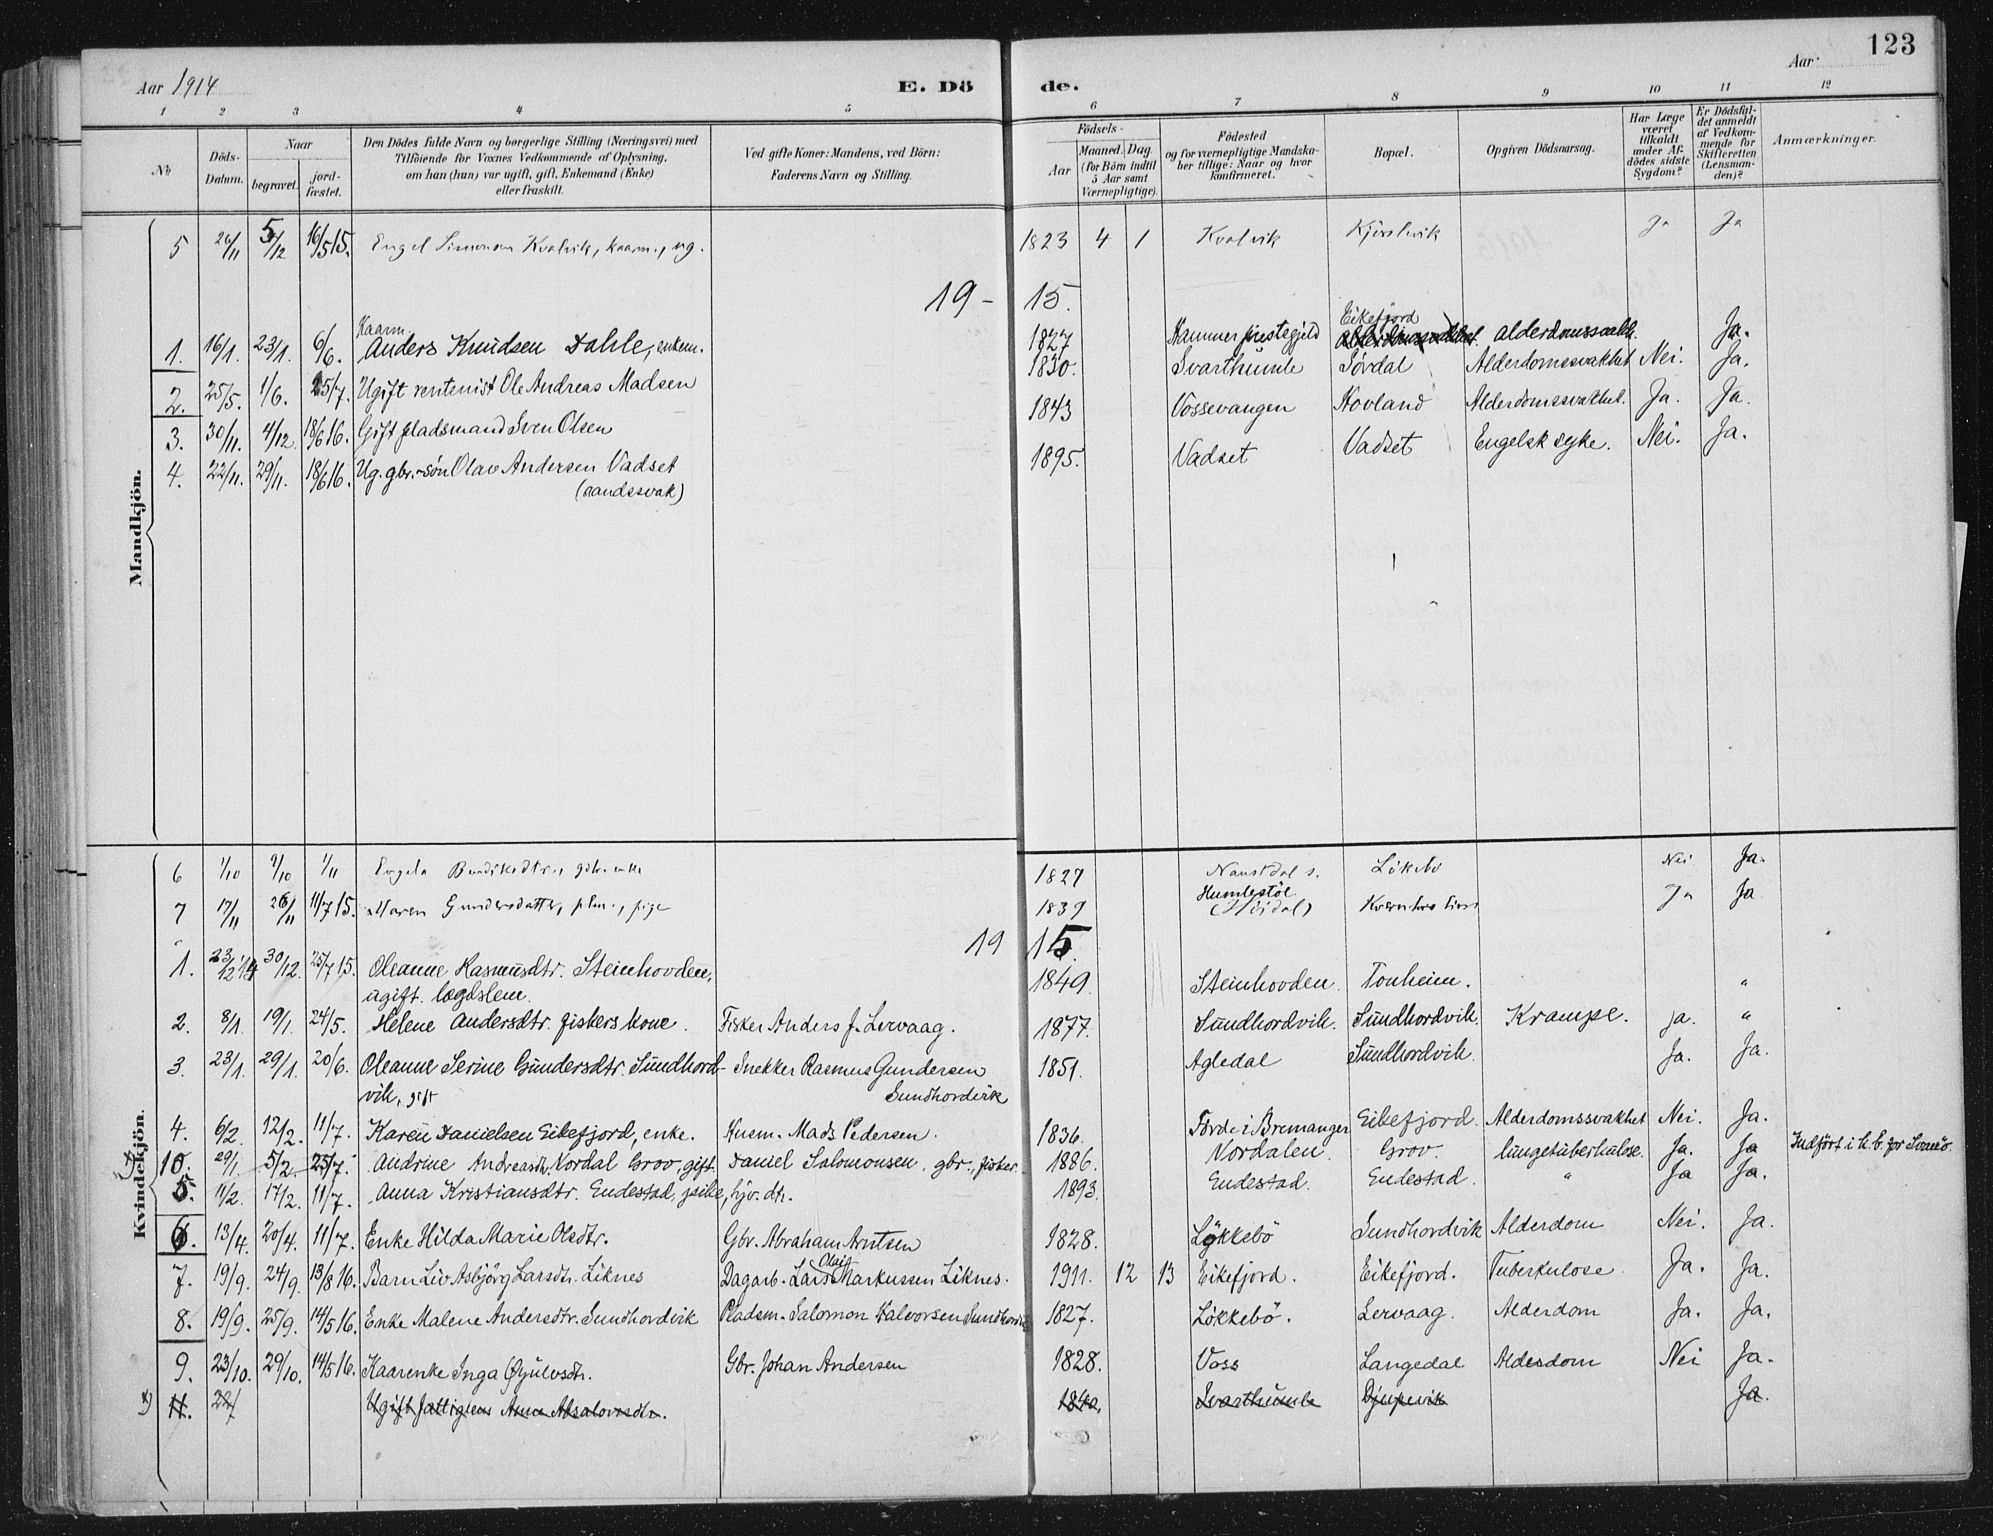 123
Aar 1914 E. Dö de. Aar
1 2 3 4 5 6 7 8 9 10 11 12
No
Döds-Datum.
Naar
begravet.
jord-fæstet.
Den Dödes fulde Navn og borgerlige Stilling (Næringsvei) med
Tilföiende for Voxnes Vedkommende af Oplysning,
om han (hun) var ugift, gift, Enkemand (Enke)
eller fraskilt.
Ved gifte Koner: Mandens, ved Börn:
Faderens Navn og Stilling.
Födsels-
Aar
Maaned. Dag.
(for Börn indtil
5 Aar samt
Værnepligtige).
Födested
og for værnepligtige Mandska-
ber tillige: Naar og hvor
konfirmeret.
Bopæl.
Opgiven Dödsaarsag.
Har Læge
været
tilkaldt
under Af-
dödes sidste
Sygdom?
Er Dödsfal-
det anmeldt
af Vedkom-
mende for
Skifteretten
(Lensman-
den)?
Anmærkninger.
Mandkjön.
5 26/11 5/12 16/5 15. Engel Simonsen Kvalvik, kaarm., ug. 1823 4 1 Kvalvik Ja Ja
19- 15.
1. 16/1. 23/1. 6/6. Kaarm. Anders Knudsen Dahle, enkem. 1827 Hammer prestegjeld Eikefjord alderdomssvakh. Ja.
2. 25/5. 1/6. 25/7. Ugift rentenist Ole Andreas Madsen 1830. Svarthumle Sördal Alderdomssvakhet Nei. Ja.
3. 30/11. 4/12. 18/6 16. Gift pladsmand Sven Olsen 1843 Vossevangen Hovland Alderdomssvakhet. Ja. Ja.
4. 22/11. 29/11. 18/6 16. Ug. gbr.-sön Olav Andersen Vadset 1895. Vadset Vadset Engelsk syke. Nei. Ja.
(aandssvak)
Kvindekjön.
6 1/10 9/10 1/11 Engela Bendiksdtr., gdbr. enke 1827 Naustdal s. Lökebö Nei Ja.
7 17/11 26/11 11/7 15. Maren Gundersdatter, plm., pige 1839 Humlestöl (Höidal) Ja Ja
19 15.
1. 23/12 14 30/12. 25/7 15. Oleanne Rasmusdtr. Steinhovden, 1849. Steinhovden. Tonheim. "
ugift. lægdslem.
2. 8/1. 19/1. 24/5. Helene Andersdtr. fiskers kone. Fisker Anders J. Lervaag. 1877. Sundhordvik. Sundhordvik. Krampe. ja. "
3. 23/1. 29/1. 20/6. Oleanne Serine Gundersdtr. Sundhord- Snekker Rasmus Gundersen 1851. Agledal Sundhordvik. Ja. Ja.
vik, gift Sundhordvik
4. 6/2. 12/2. 11/7. Karen Danielsen Eikefjord, enke. Husm. Mads Pedersen. 1836. Förde i Bremanger Eikefjord. Alderdomssvakhet Nei. Ja.
10. 29/1. 5/2. 25/7. Andrine Andreasdtr. Nordal Grov, gift. Daniel Salomonsen, gbr., fisker. 1886. Nordalen. Grov. lungetuberkulose. Ja. Ja Indfört i k. b. for Svanö.
5. 11/2. 17/2. 11/7. Anna Kristiansdtr. Endestad, pike, hjv. dtr. 1893. Endestad. Endestad. " Ja Ja.
6. 13/4. 20/4. 11/7. Enke Hilda Marie Olsdtr. Gbr. Abraham Arntsen 1828. Lökkebö Sundhordvik Alderdom Nei. Ja.
7. 19/9. 24/9. 13/8 16. Barn Liv Asbjörg Larsdtr. Liknes Dagarb. Lars Olai Markussen Liknes. 1911. 12 13 Eikefjord. Eikefjord. Tuberkulose Ja. Ja.
8. 19/9. 25/9. 14/5 16. Enke Malene Andersdtr. Sundhordvik Pladsm. Salomon Halvorsen Sundhordvik 1827. Lökkebö. Lervaag. Alderdom Ja. Ja.
9. 23/10. 29/10. 14/5 16. Kaarenke Inga Gjulvsdtr. Gbr. Johan Andersen 1828. Voss Langedal Alderdom Nei Ja.
11. Ugift fattiglem Anne Absalonsdtr. 1840. Svarthumle Djupevik Ja.